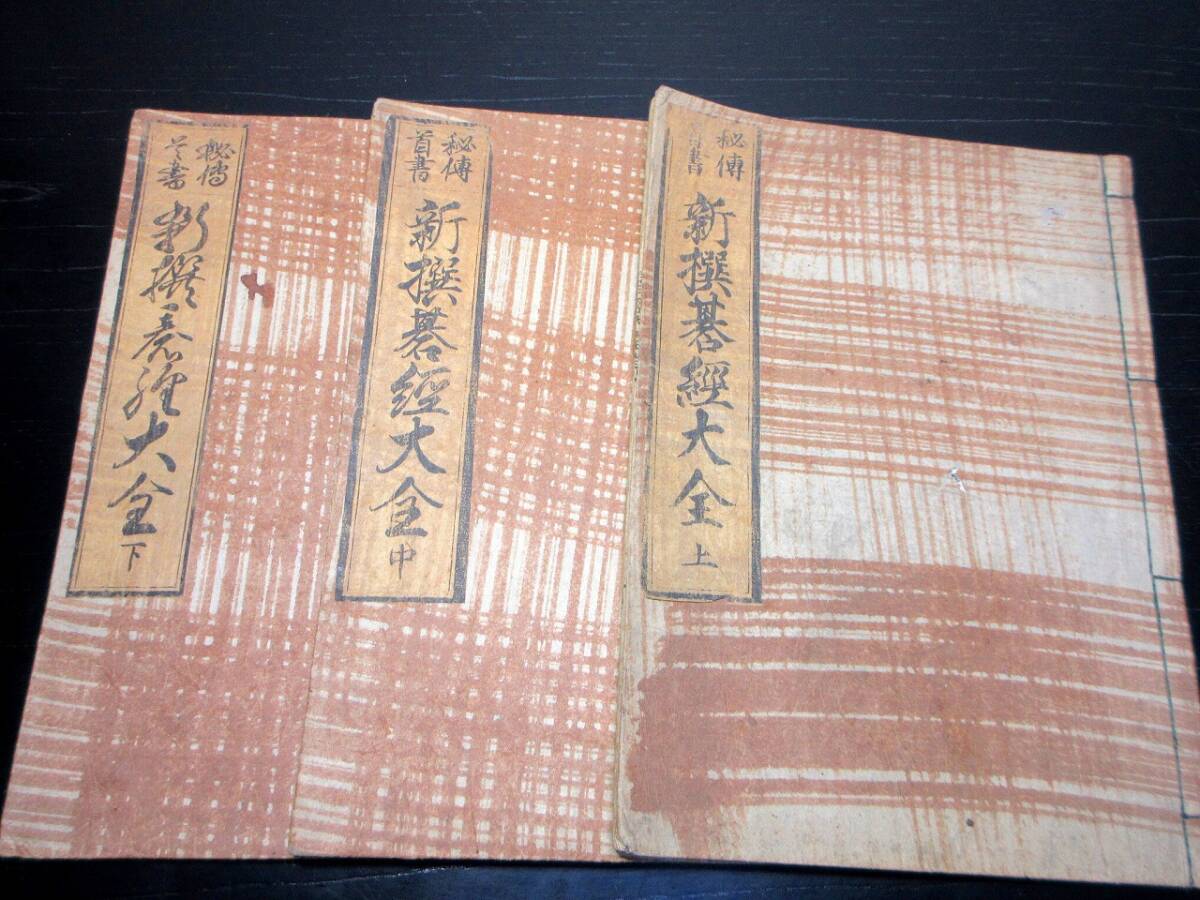 秘傳
首書
新撰碁經大全
上
秘傳
首書
新撰碁經大全
中
秘傳
首書
新撰碁經大全
下